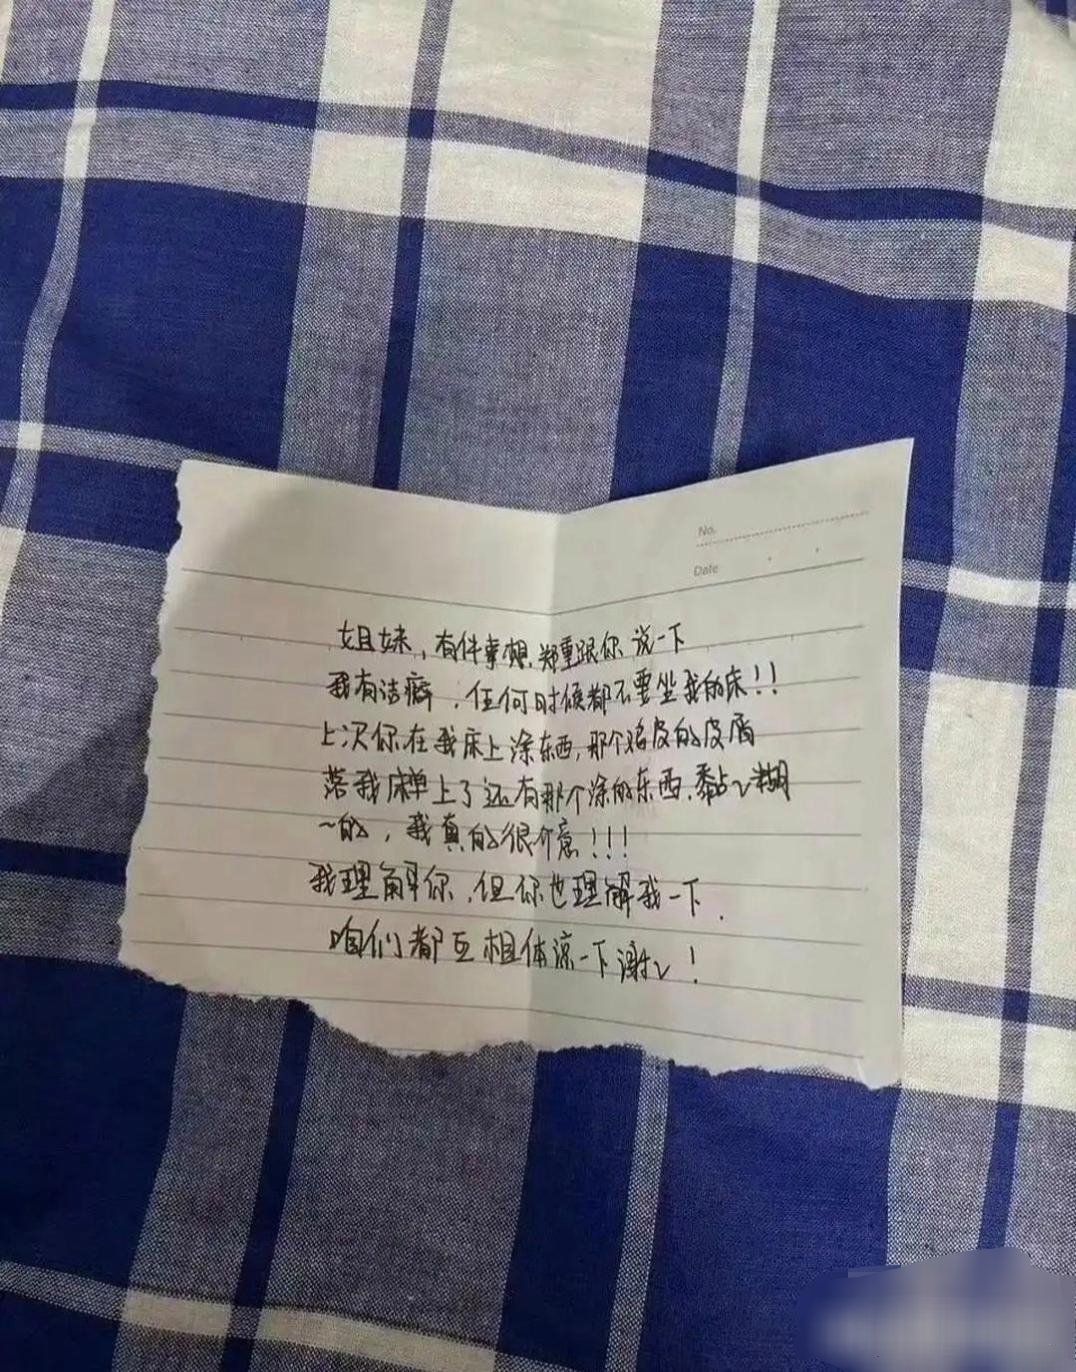 No.
Date
姐妹，有件事想，郑重跟你说一下
我有洁癖，任何时候都不要坐我的床！！
上次你在我床上涂东西，那个鸡皮的皮屑
落我床单上了还有那个涂的东西，黏〻糊
～的，我真的很介意！！！
我理解你，但你也理解我一下．
咱们都互相体谅一下谢〻！